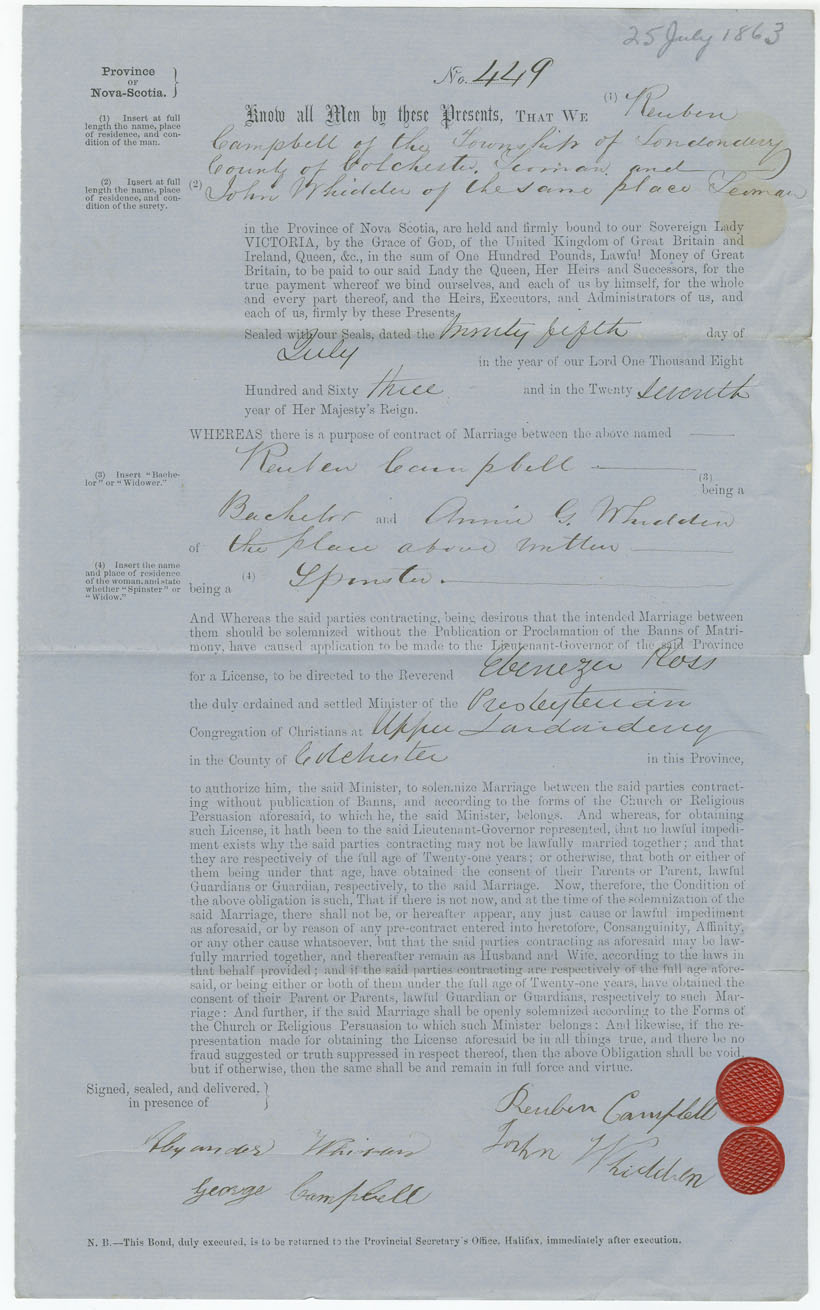 25 July 1863
No. 449
Province
OF
Nova-Scotia.
(1) Insert at full
length the name, place
of residence, and con-
dition of the man.
Know all Men by these Presents, THAT WE (1) Reuben
Campbell of the Township of Londonderry
County of Colchester, Yeoman and
(2) Insert at full
length the name, place
of residence, and con-
dition of the surety.
(2) John Whidden of the same place Yeoman
in the Province of Nova Scotia, are held and firmly bound to our Sovereign Lady
VICTORIA, by the Grace of GOD, of the United Kingdom of Great Britain and
Ireland, Queen, &c., in the sum of One Hundred Pounds, Lawful Money of Great
Britain, to be paid to our said Lady the Queen, Her Heirs and Successors, for the
true payment whereof we bind ourselves, and each of us by himself, for the whole
and every part thereof, and the Heirs, Executors, and Administrators of us, and
each of us, firmly by these Presents.
Sealed with our Seals, dated the twenty fifth day of
July in the year of our Lord One Thousand Eight
Hundred and Sixty three and in the Twenty seventh
year of Her Majesty's Reign.
WHEREAS there is a purpose of contract of Marriage between the above named
Reuben Campbell
(3) Insert "Bache-
lor" or "Widower."
(3)
being a
Bachelor and Annie G. Whidden
of the place above written
(4) Insert the name
and place of residence
of the woman, and state
whether "Spinster" or
"Widow."
being a (4) Spinster.
And Whereas the said parties contracting, being desirous that the intended Marriage between
them should be solemnized without the Publication or Proclamation of the Banns of Matri-
mony, have caused application to be made to the Lieutenant-Governor of the said Province
for a License, to be directed to the Reverend Ebenezer Ross
the duly ordained and settled Minister of the Presbyterian
Congregation of Christians at Upper Londonderry
in the County of Colchester in this Province,
to authorize him, the said Minister, to solemnize Marriage between the said parties contract-
ing without publication of Banns, and according to the forms of the Church or Religious
Persuasion aforesaid, to which he, the said Minister, belongs. And whereas, for obtaining
such License, it hath been to the said Lieutenant-Governor represented, that no lawful impedi-
ment exists why the said parties contracting may not be lawfully married together; and that
they are respectively of the full age of Twenty-one years; or otherwise, that both or either of
them being under that age, have obtained the consent of their Parents or Parent, lawful
Guardians or Guardian, respectively, to the said Marriage. Now, therefore, the Condition of
the above obligation is such, That if there is not now, and at the time of the solemnization of the
said Marriage, there shall not be, or hereafter appear, any just cause or lawful impediment
as aforesaid, or by reason of any pre-contract entered into heretofore, Consanguinity, Affinity,
or any other cause whatsoever, but that the said parties contracting as aforesaid may be law-
fully married together, and thereafter remain as Husband and Wife, according to the laws in
that behalf provided; and if the said parties contracting are respectively of the full age afore-
said, or being either or both of them under the full age of Twenty-one years, have obtained the
consent of their Parent or Parents, lawful Guardian or Guardians, respectively to such Mar-
riage: And further, if the said Marriage shall be openly solemnized according to the Forms of
the Church or Religious Persuasion to which such Minister belongs: And likewise, if the re-
presentation made for obtaining the License aforesaid be in all things true, and there be no
fraud suggested or truth suppressed in respect thereof, then the above Obligation shall be void,
but if otherwise, then the same shall be and remain in full force and virtue.
Signed, sealed, and delivered,
in presence of
Reuben Campbell
Alexander
John Whidden
George Campbell
N. B.—This Bond, duly executed, is to be returned to the Provincial Secretary's Office, Halifax, immediately after execution.